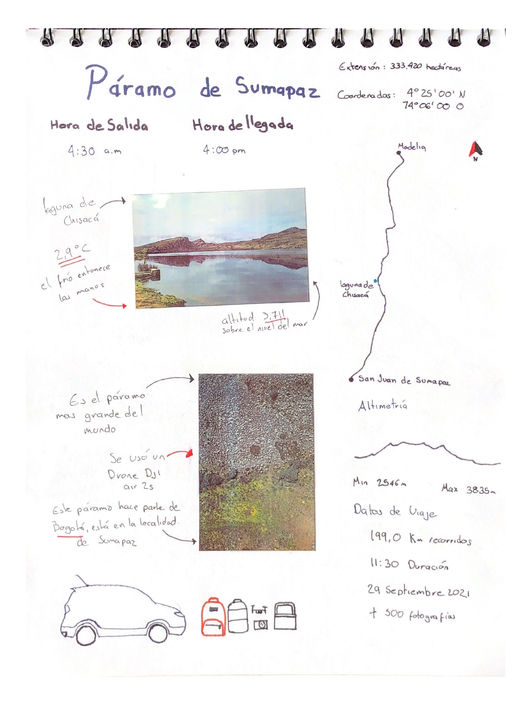 Páramo de Sumapaz
Extensión: 333,420 hectáreas
Coordenadas: 4°25'00" N
74°06'00 O
Hora de Salida
4:30 a.m
Hora de llegada
4:00 pm
laguna de
Chisacá
2,9°C
el frío entumece
las manos
altitud 3,711
sobre el nivel del mar
Madelia
N
laguna de
Chisacá
San Juan de Sumapaz
Altimetría
Es el páramo
mas grande del
mundo
Se usó un
Drone DJI
air 2s
Este páramo hace parte de
Bogotá, está en la localidad
de Sumapaz
Min 2546m
Max 3835m
Datos de Viaje
199,0 Km recorridos
11:30 Duración
29 Septiembre 2021
+ 500 fotografías